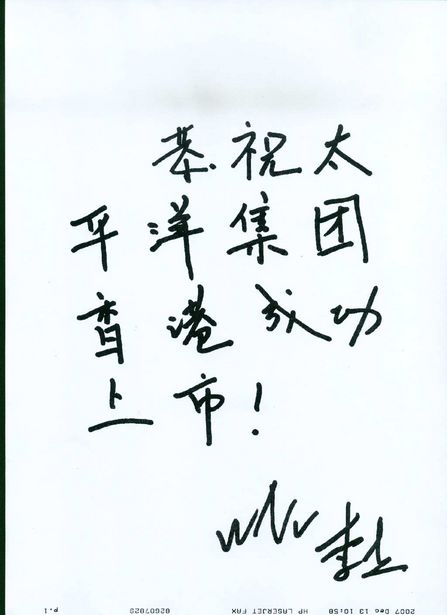 恭祝太
平洋集团
香港成功
上市！
2007 Dec 13 10:58 HP LASERJET FAX 82607829 p.1